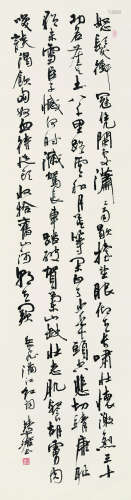 怒髮衝冠憑闌處瀟瀟雨歇擡望眼仰天長嘯壯懷激烈三十
功名塵與土八千里路雲和月莫等閑白了少年頭空悲切靖康恥
猶未雪臣子憾何時滅駕長車踏破賀蘭山缺壯志飢餐胡虜肉
笑談渴飲匈奴血待從頭收拾舊山河朝天闕
岳飛滿江紅詞